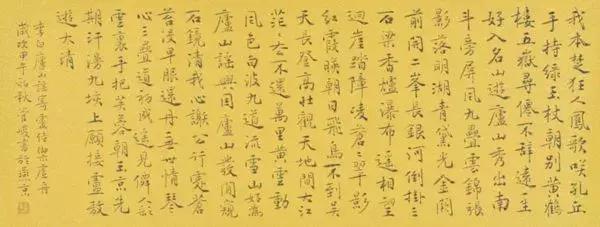 我本楚狂人鳳歌咲孔丘
手持綠玉杖朝別黃鶴
樓五嶽尋僊不辭遠一生
好入名山遊廬山秀出南
斗傍屏風九疊雲錦張
影落明湖青黛光金闕
前開二峯長銀河倒掛三
石梁香爐瀑布遥相望
迴崖沓障凌蒼〻翠影
紅霞暎朝日飛鳥不到吳
天長登高壯觀天地間大江
茫〻去不還萬里黃雲動
風色白波九道流雪山好為
廬山謡興因廬山發閒窺
石鏡清我心謝公行處蒼
苔沒早服還丹無世情琴
心三疊道初成遥見僊人彩
雲裏手把芙蓉朝玉京先
期汗漫九垓上願接盧敖
遊太清
李白廬山謡寄盧侍御虛舟
歲次甲午初秋管峻書於燕京